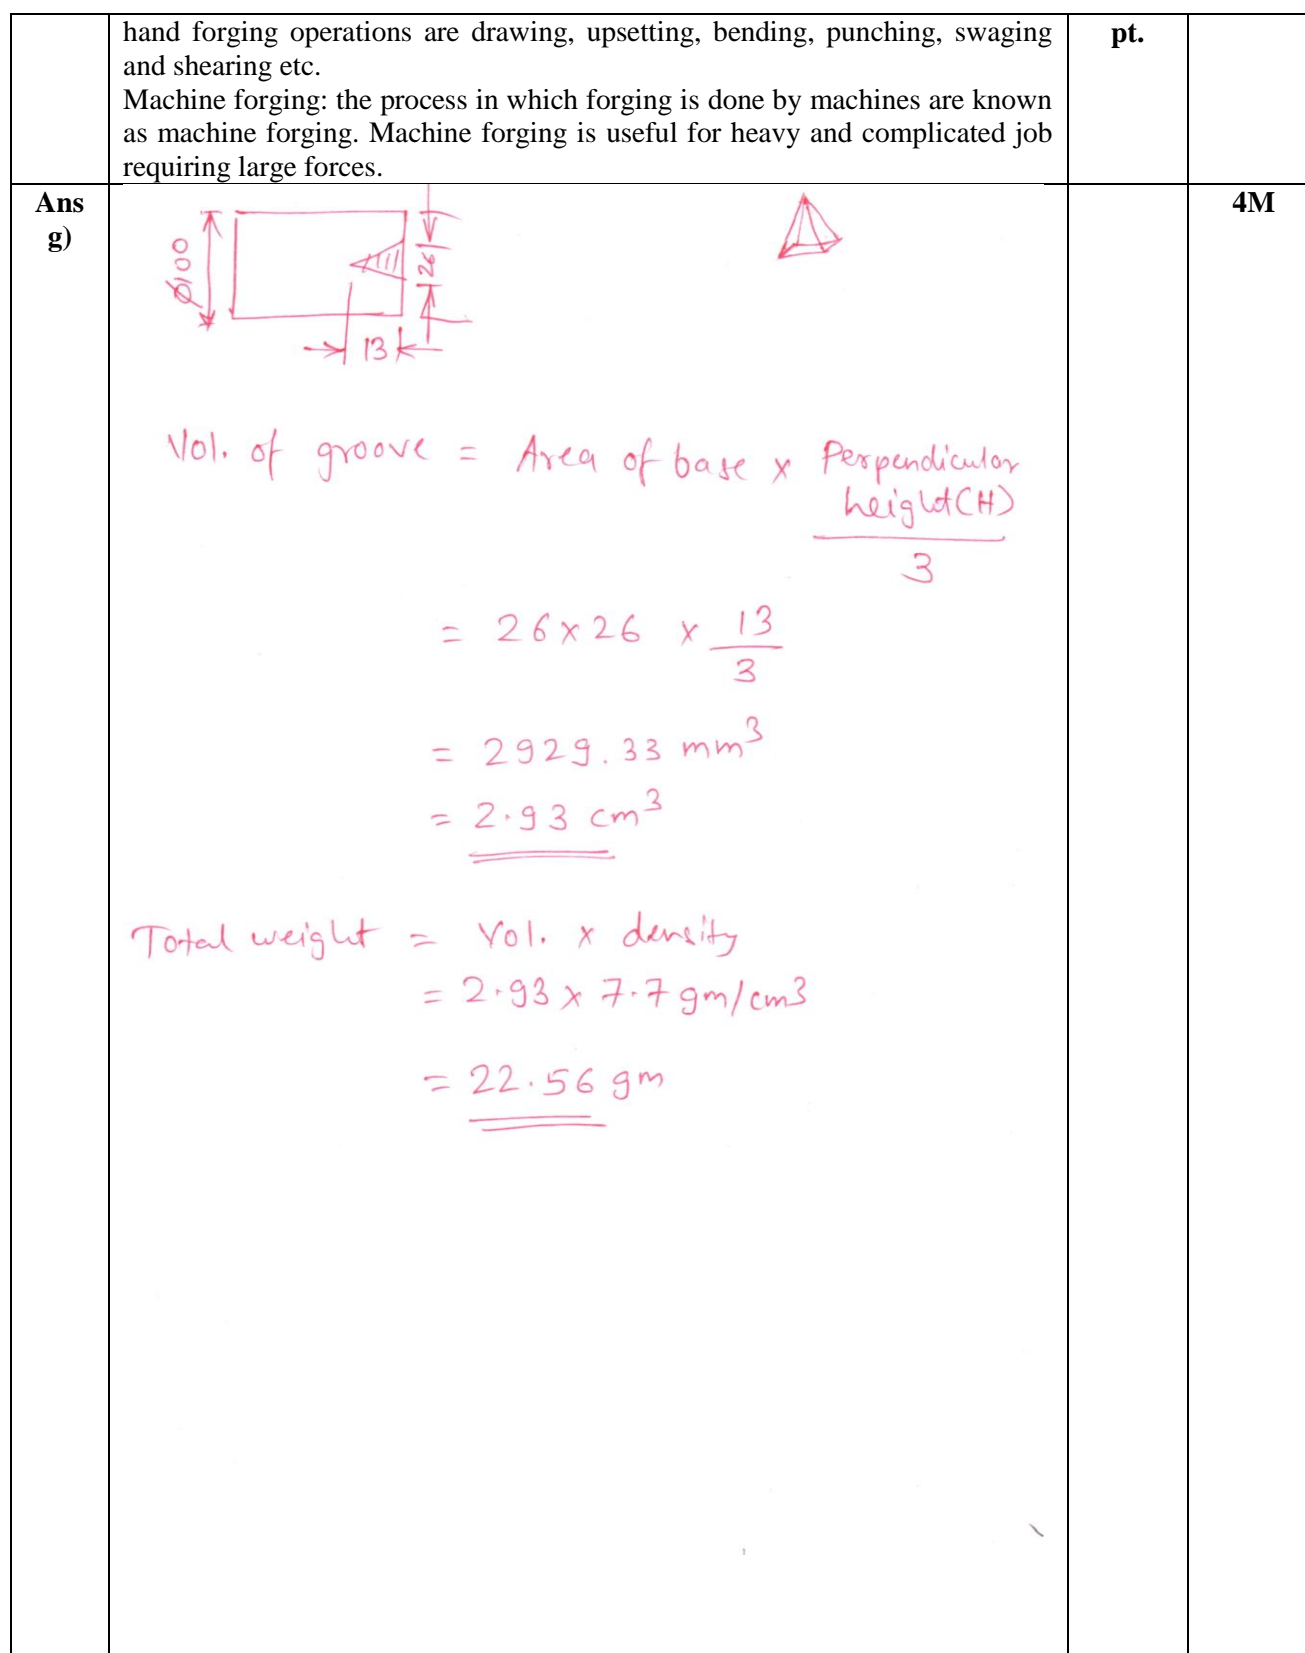 hand forging operations are drawing, upsetting, bending, punching, swaging
and shearing etc.
Machine forging: the process in which forging is done by machines are known
as machine forging. Machine forging is useful for heavy and complicated job
requiring large forces.
pt.
Ans
g)
4M
ϕ100
26
13
Vol. of groove = Area of base x Perpendicular
height(H)
3
= 26 x 26 x 13
3
= 2929.33 mm³
= 2.93 cm³
Total weight = Vol. x density
= 2.93 x 7.7 gm/cm3
= 22.56 gm